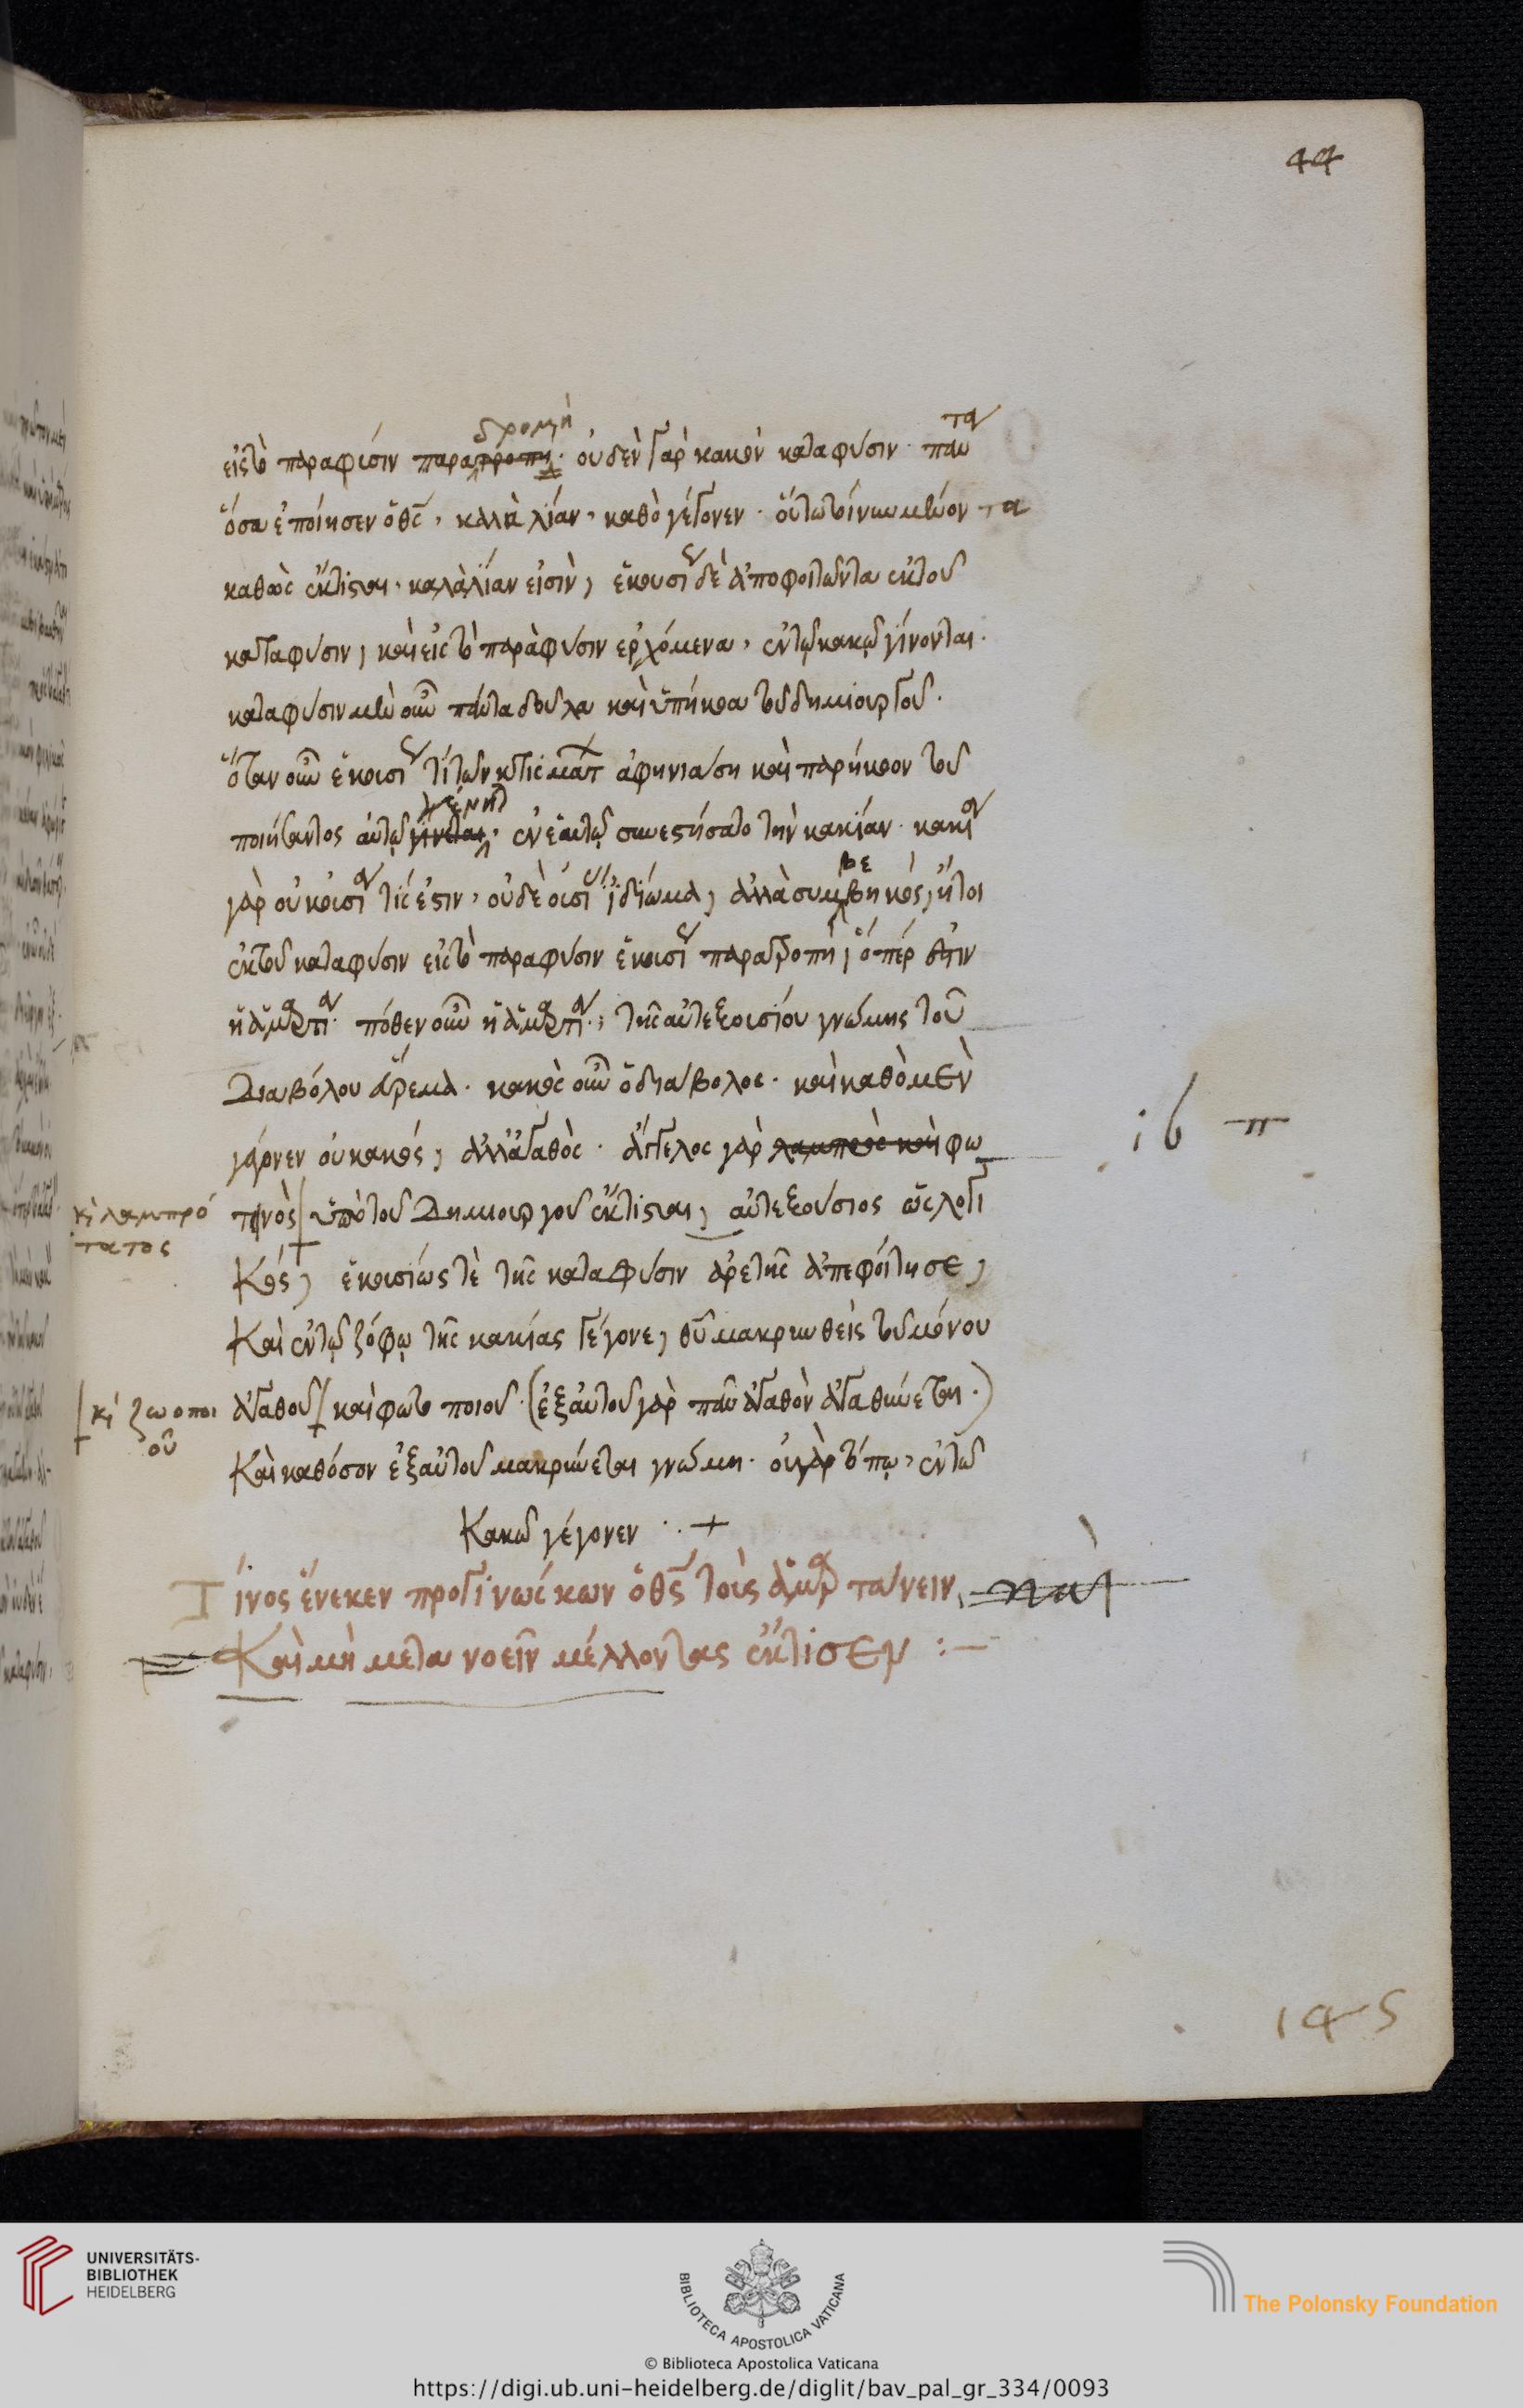 44
δρομὴ
τα
εἰς τὸ παραφύσιν παρατρόπη· οὐδὲν γὰρ κακὸν καταφύσιν· πάν
ὅσα ἐποίησεν ὁ θς, καλὰ λίαν, καθὸ γέγονεν· οὕτω τοίνυν μένοντα
καθὼς ἔκτισται, καλὰ λίαν εἰσὶν, ἑκουσί δὲ ἀποφοιτῶντα ἐκ τοῦ
κατα φύσιν, καὶ εἰς τὸ παρὰ φύσιν ἐρχόμενα, ἐν τῷ κακῷ γίνονται·
κατα φύσιν μὲν οὖν πάντα δοῦλα καὶ ὑπήκοα τοῦ δημιουργοῦ·
ὅταν οὖν ἑκουσί τὶ τῶν κτισμάτ ἀφηνιάση καὶ παρήκοον τοῦ
ποιήσαντος αὐτῷ γίνεται, ἐν ἑαυτῷ συνεστήσατο τὴν κακίαν· κακί
βε
γὰρ οὐκ οὐσί τίς ἐστιν, οὐδὲ οὐσί ἰδίωμα, ἀλλὰ συμβηκός, ἤτοι
ἐκ τοῦ κατα φύσιν εἰς τὸ παρα φύσιν ἑκουσί παρατροπὴ, ὅπέρ ἐστιν
ἡ ἁμαρτί· πόθεν οὖν ἡ ἁμαρτί; τῆς αὐτεξουσίου γνώμης τοῦ
Διαβόλου εὕρεμα· κακὸς οὖν ὁ διάβολος· καὶ καθὸ μὲν
γέγονεν οὐ κακός, ἀλλ' ἀγαθὸς· ἄγγελος γὰρ λαμπρὸς καὶ φω
κὶ λαμπρό
τατος
τεινὸς ὑπὸ τοῦ Δημιουργοῦ ἔκτισται, αὐτεξούσιος ὡς λογι
Κός, ἑκουσίως τὲ τῆς κατα φύσιν ἀρετῆς ἀπεφοίτησε,
Καὶ ἐν τῷ ζόφῳ τῆς κακίας γέγονε, θῦ μακρυνθεὶς τοῦ μόνου
κὶ ζωοποι
οῦ
ἀγαθοῦ καὶ φωτοποιοῦ· (ἐξ αὐτοῦ γὰρ πᾶν ἀγαθὸν ἀγαθύνεται·)
Καὶ καθόσον ἐξ αὐτοῦ μακρύνεται γνώμη· οὐ γὰρ τόπῳ, ἐν τῶ
Κακῶ γέγονεν ·. +
Τίνος ἕνεκεν προγινώσκων ὁ θς τοὺς ἁμαρτάνειν
Καὶ μὴ μετανοεῖν μέλλοντας ἔκτισεν :—
145
UNIVERSITÄTS-
BIBLIOTHEK
HEIDELBERG
BIBLIOTECA APOSTOLICA VATICANA
The Polonsky Foundation
© Biblioteca Apostolica Vaticana
https://digi.ub.uni-heidelberg.de/diglit/bav_pal_gr_334/0093